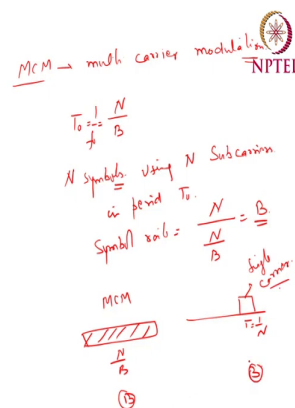 MCM → multi carrier modulation
NPTEL
T₀ = 1/f₀ = N/B
N symbols using N Subcarriers
in period T₀.
Symbol rate = N/(N/B) = B
MCM
Single
carrier
T = 1/N
N/B
B
B